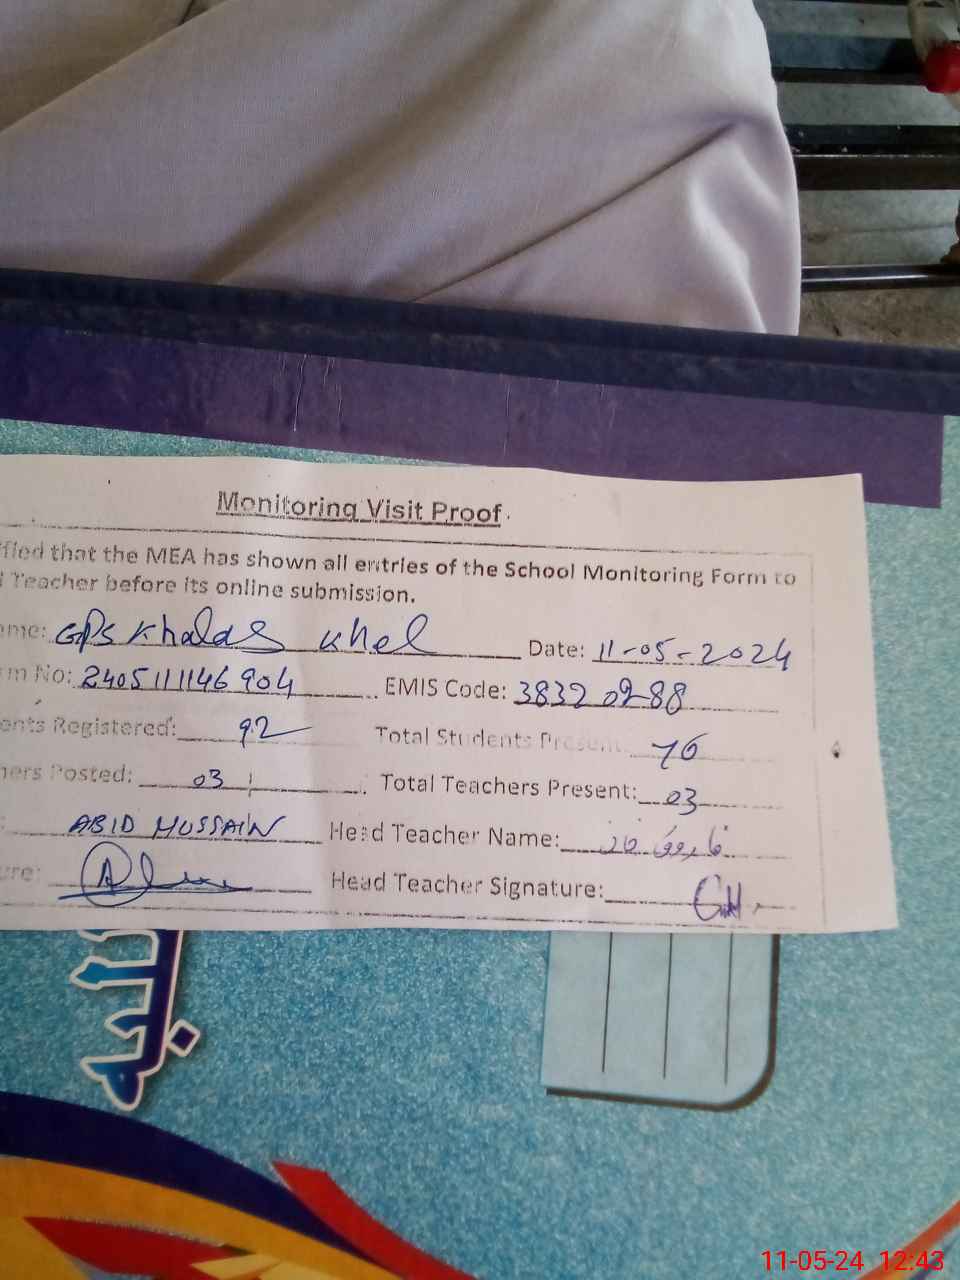 Monitoring Visit Proof
ified that the MEA has shown all entries of the School Monitoring Form to
Teacher before its online submission.
ame: GPS Khalas Khel Date: 11-05-2024
m No: 2405111146904 EMIS Code:
ents Registered: 92 Total Students Present 76
hers Posted: 03 Total Teachers Present: 03
: ABID HUSSAIN Head Teacher Name:
ure: Head Teacher Signature:
11-05-24 12:43